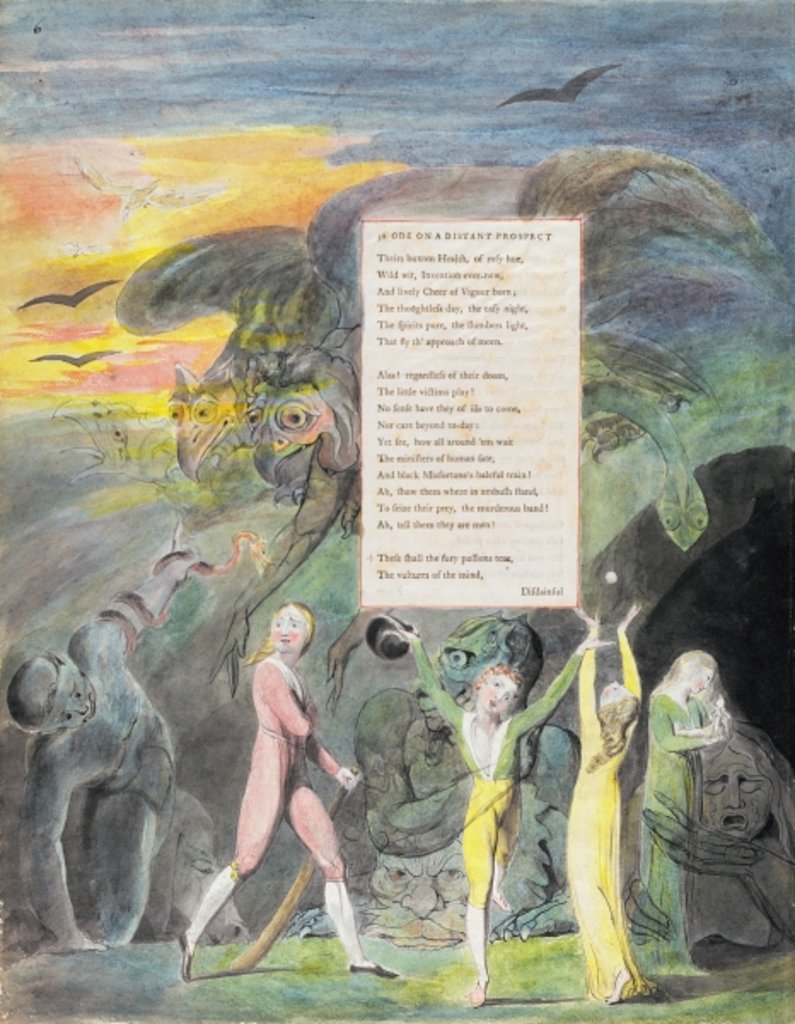 6
32 ODE ON A DISTANT PROSPECT
Theirs buxom Health, of rosy hue,
Wild wit, Invention ever-new,
And lively Cheer of Vigour born;
The thoughtless day, the easy night,
The spirits pure, the slumbers light,
That fly th' approach of morn.
Alas! regardless of their doom,
The little victims play!
No sense have they of ills to come,
Nor care beyond to-day:
Yet see, how all around 'em wait
The ministers of human fate,
And black Misfortune's baleful train!
Ah, show them where in ambush stand,
To seize their prey, the murderous band!
Ah, tell them they are men!
These shall the fury passions tear,
The vultures of the mind,
Disdainful